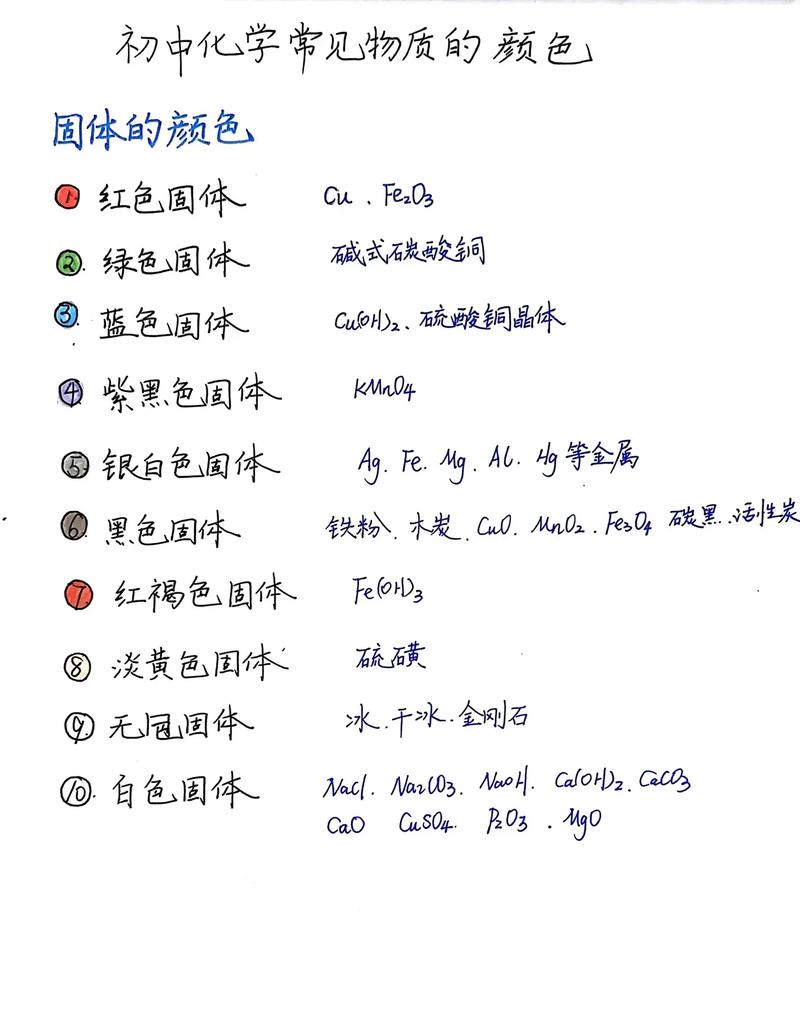 初中化学常见物质的颜色
固体的颜色
① 红色固体 Cu、Fe₂O₃
②. 绿色固体 碱式碳酸铜
③ 蓝色固体 Cu(OH)₂、硫酸铜晶体
④ 紫黑色固体 KMnO₄
⑤ 银白色固体 Ag、Fe、Mg、Al、Hg等金属
⑥ 黑色固体 铁粉、木炭、CuO、MnO₂、Fe₃O₄ 碳黑、活性炭
⑦ 红褐色固体 Fe(OH)₃
⑧ 淡黄色固体 硫磺
⑨ 无色固体 冰、干冰、金刚石
⑩. 白色固体 NaCl、Na₂CO₃、NaOH、Ca(OH)₂、CaCO₃
CaO CuSO₄、P₂O₃、MgO